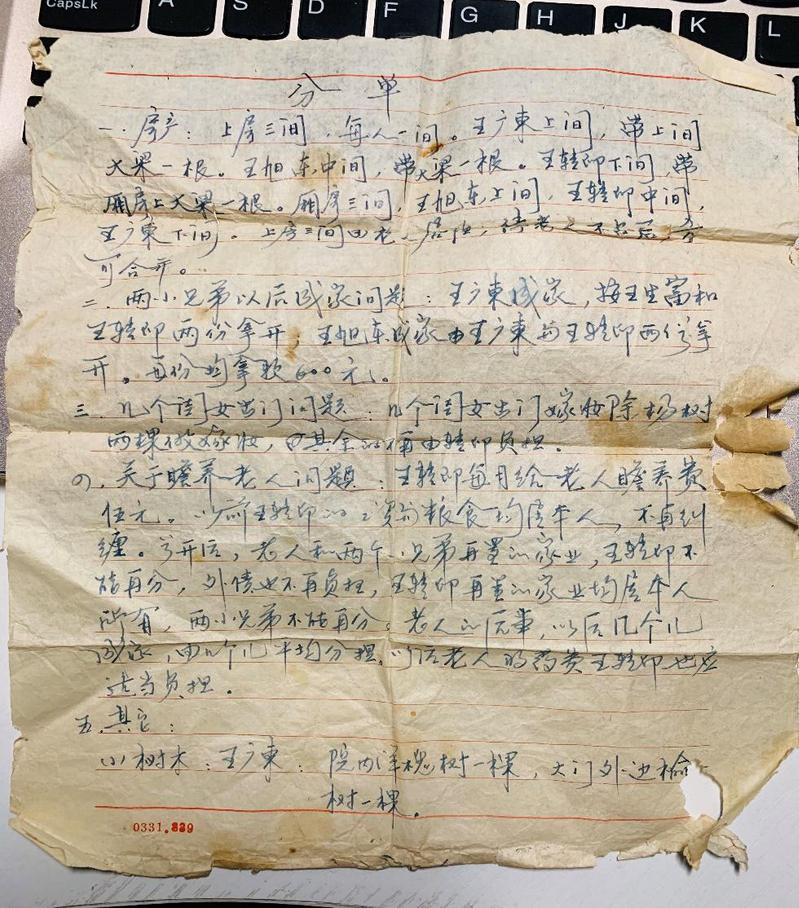 CapsLk A S D F G H J K L
分 单
一. 房产: 上房三间, 每人一间。王广东上间, 带上间
大梁一根。王旭东中间, 带大梁一根。王转印下间, 带
厢房上大梁一根。厢房三间, 王旭东上间, 王转印中间,
王广东下间。上房三间由老人居住, 待老人不在后, 方
可合开。
二. 两小兄弟以后成家问题: 王广东成家, 按王生富和
王转印两份拿开; 王旭东成家由王广东与王转印两份拿
开。每份均拿款600元。
三. 几个闺女出门问题: 几个闺女出门嫁妆除杨树
两棵做嫁妆, 其余不再由转印负担。
四. 关于瞻养老人问题: 王转印每月给老人瞻养费
伍元。以前王转印的工资前粮食均属本人, 不再纠
缠。分开后, 老人和两个小兄弟再置的家业, 王转印不
能再分, 外债也不再负担, 王转印再置的家业均属本人
所有, 两小兄弟不能再分。老人的后事, 以后几个儿
成家, 由几个儿平均分担。以后老人的药费王转印也应
适当负担。
五. 其它:
(1) 树木: 王广东: 院内洋槐树一棵, 大门外边榆
树一棵。
0331.839